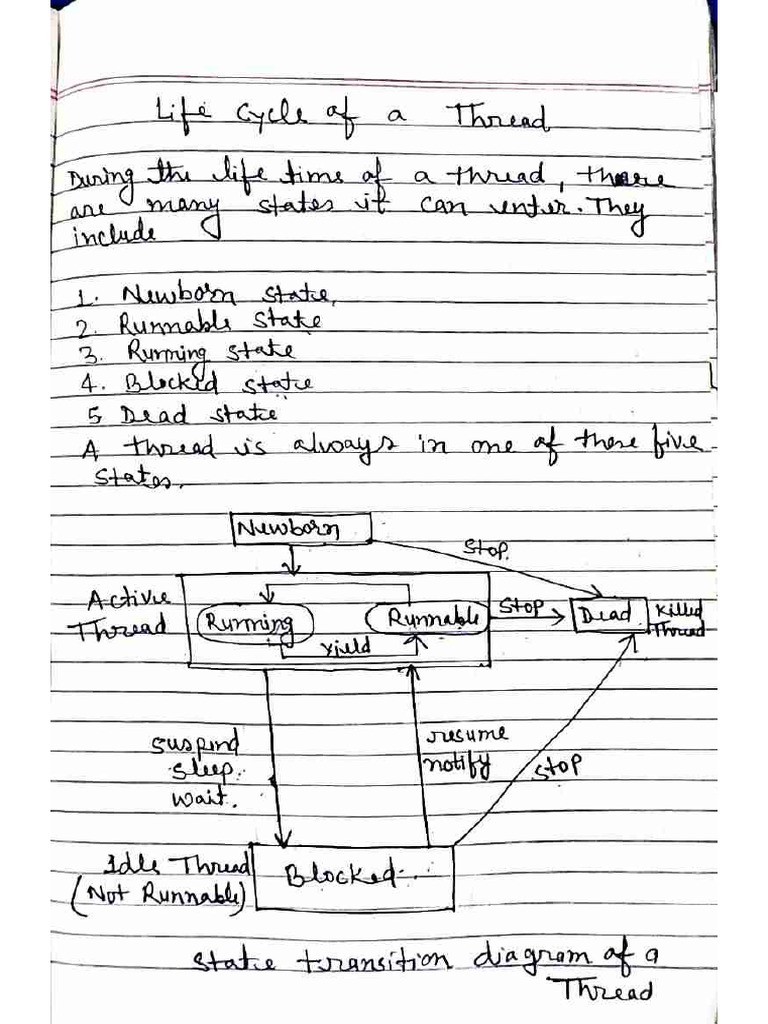 Life Cycle of a Thread
During the life time of a thread, there
are many states it can enter. They
include
1. Newborn state.
2. Runnable state
3. Running state
4. Blocked state
5 Dead state
A thread is always in one of these five
states.
Newborn
stop.
Active
Thread
Running
Runnable
yield
stop
Dead
Killed
Thread
suspend
sleep.
wait.
resume
notify
stop
Idle Thread
(Not Runnable)
Blocked.
state transition diagram of a
Thread